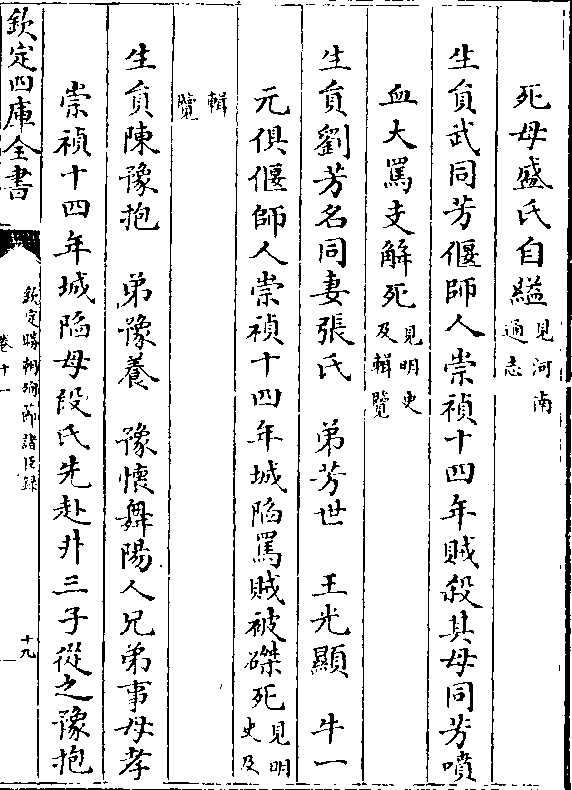 死母盛氏自縊見河南通志
生員武同芳偃師人崇禎十四年賊殺其母同芳噴
血大罵支解死見明史及輯覽
生員劉芳名同妻張氏 弟芳世 王光顯 牛一
元俱偃師人崇禎十四年城陷罵賊被磔死見明史及
輯覽
生員陳豫抱 弟豫養 豫懷舞陽人兄弟事母孝
崇禎十四年城陷母段氏先赴井三子從之豫抱
欽定四庫全書
欽定勝朝殉節諸臣錄
卷十一
十九